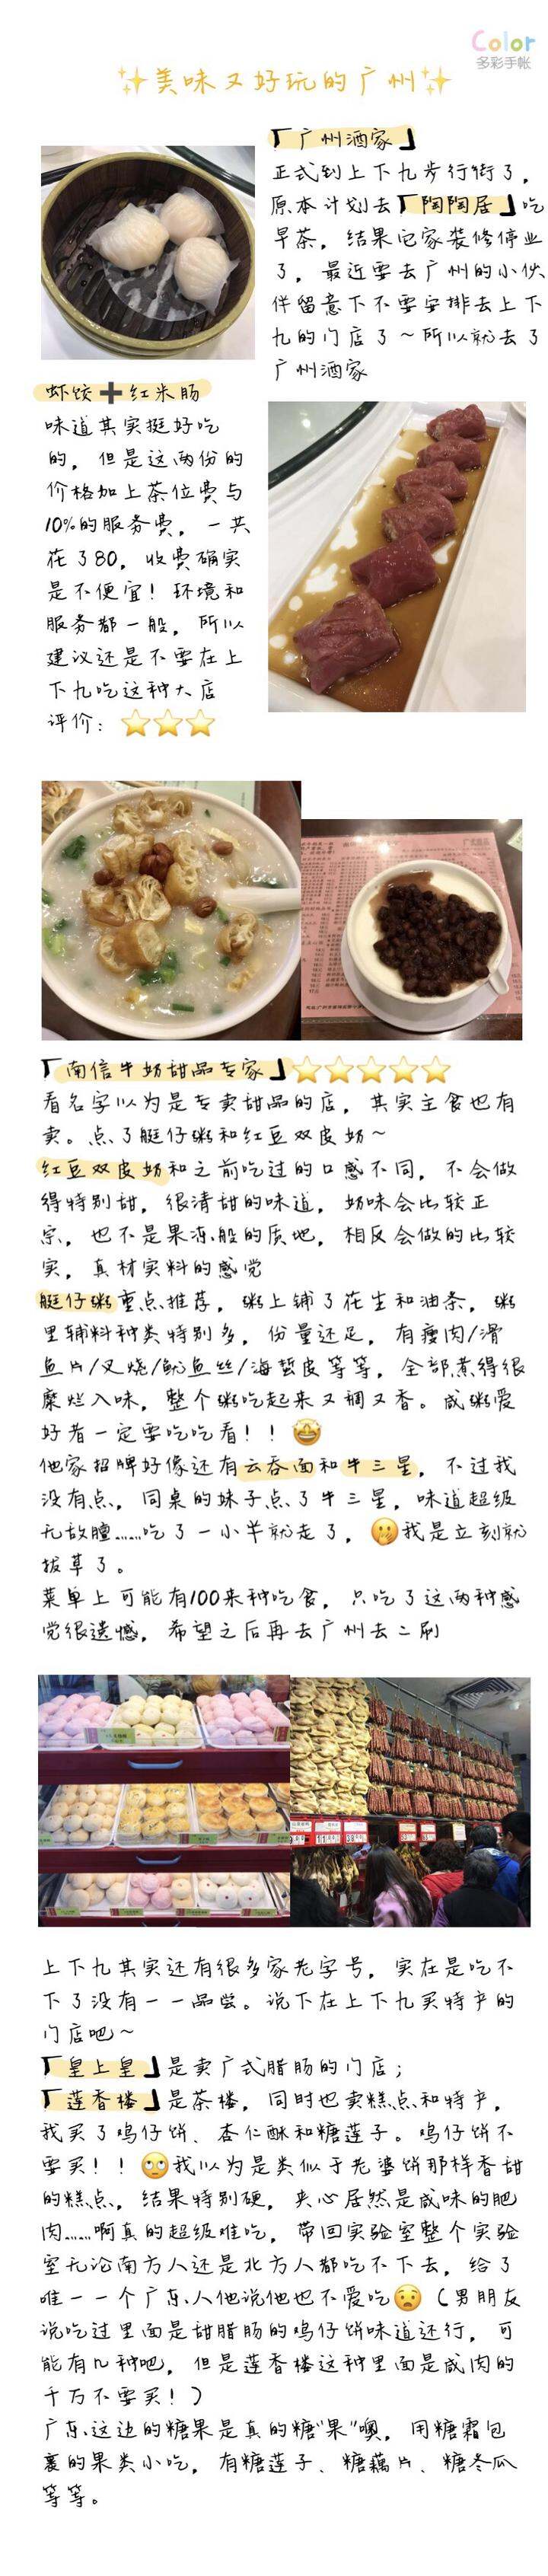 Color
多彩手帐
美味又好玩的广州
「广州酒家」
正式到上下九步行街了，
原本计划去「陶陶居」吃
早茶，结果它家装修停业
了，最近要去广州的小伙
伴留意下不要安排去上下
九的门店了~所以就去了
广州酒家
虾饺➕红米肠
味道其实挺好吃
的，但是这两份的
价格加上茶位费与
10%的服务费，一共
花了80，收费确实
是不便宜！环境和
服务都一般，所以
建议还是不要在上
下九吃这种大店
评价：⭐⭐⭐
「南信牛奶甜品专家」⭐⭐⭐⭐⭐
看名字以为是专卖甜品的店，其实主食也有
卖。点了艇仔粥和红豆双皮奶~
红豆双皮奶和之前吃过的口感不同，不会做
得特别甜，很清甜的味道，奶味会比较正
宗，也不是果冻般的质地，相反会做的比较
实，真材实料的感觉
艇仔粥重点推荐，粥上铺了花生和油条，粥
里辅料种类特别多，份量还足，有瘦肉/滑
鱼片/叉烧/鱿鱼丝/海蜇皮等等，全部煮得很
糜烂入味，整个粥吃起来又稠又香。咸粥爱
好者一定要吃吃看！！🤩
他家招牌好像还有云吞面和牛三星，不过我
没有点，同桌的妹子点了牛三星，味道超级
无敌膻……吃了一小半就走了，🤭我是立刻就
拔草了。
菜单上可能有100来种吃食，只吃了这两种感
觉很遗憾，希望之后再去广州去二刷
上下九其实还有很多家老字号，实在是吃不
下了没有一一品尝。说下在上下九买特产的
门店吧~
「皇上皇」是卖广式腊肠的门店；
「莲香楼」是茶楼，同时也卖糕点和特产，
我买了鸡仔饼、杏仁酥和糖莲子。鸡仔饼不
要买！！🙄我以为是类似于老婆饼那样香甜
的糕点，结果特别硬，夹心居然是咸味的肥
肉……啊真的超级难吃，带回实验室整个实验
室无论南方人还是北方人都吃不下去，给了
唯一一个广东人他说他也不爱吃😧（男朋友
说吃过里面是甜腊肠的鸡仔饼味道还行，可
能有几种吧，但是莲香楼这种里面是咸肉的
千万不要买！）
广东这边的糖果是真的糖“果”噢，用糖霜包
裹的果类小吃，有糖莲子、糖藕片、糖冬瓜
等等。